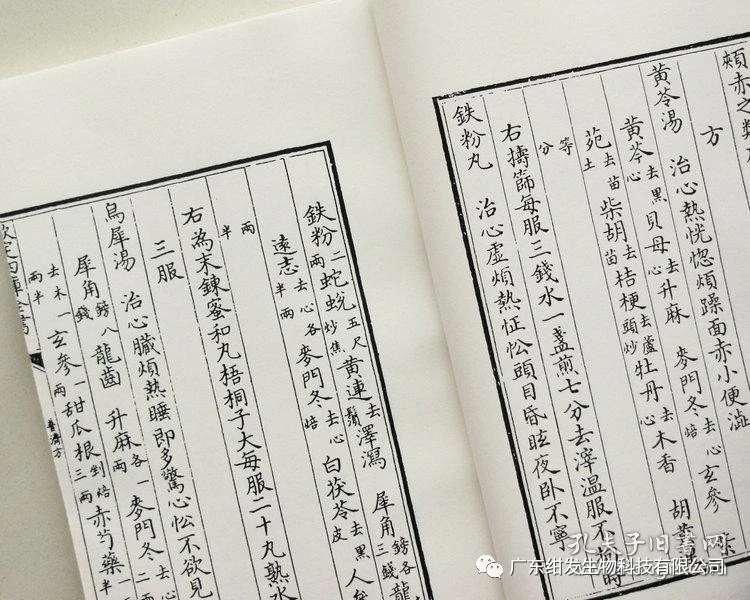 頰赤之類
方
黃芩湯 治心熱恍惚煩躁面赤小便澁
黃芩去黑心貝母去心升麻 麥門冬去心焙玄參
苑去苗土柴胡去苗桔梗去蘆頭炒牡丹去心木香 胡黃
等分
右擣篩每服三錢水一盞煎七分去滓溫服不拘時
鉄粉丸 治心虛煩熱怔忪頭目昏眩夜卧不寧
鉄粉二兩蛇蛻五尺炒焦黃連去鬚澤瀉 犀角鎊各三錢龍
遠志去心各半兩麥門冬去心焙白茯苓去黑皮人參
半兩
右為末鍊蜜和丸梧桐子大每服二十丸熟水
三服
烏犀湯 治心臟煩熱睡即多驚心忪不欲見
犀角鎊八錢龍齒 升麻各一兩麥門冬二兩
去木一兩半玄參一兩甜瓜根剉焙三兩赤芍藥一
欽定四庫全書
普濟方
孔夫子旧書网
广东绀发生物科技有限公司